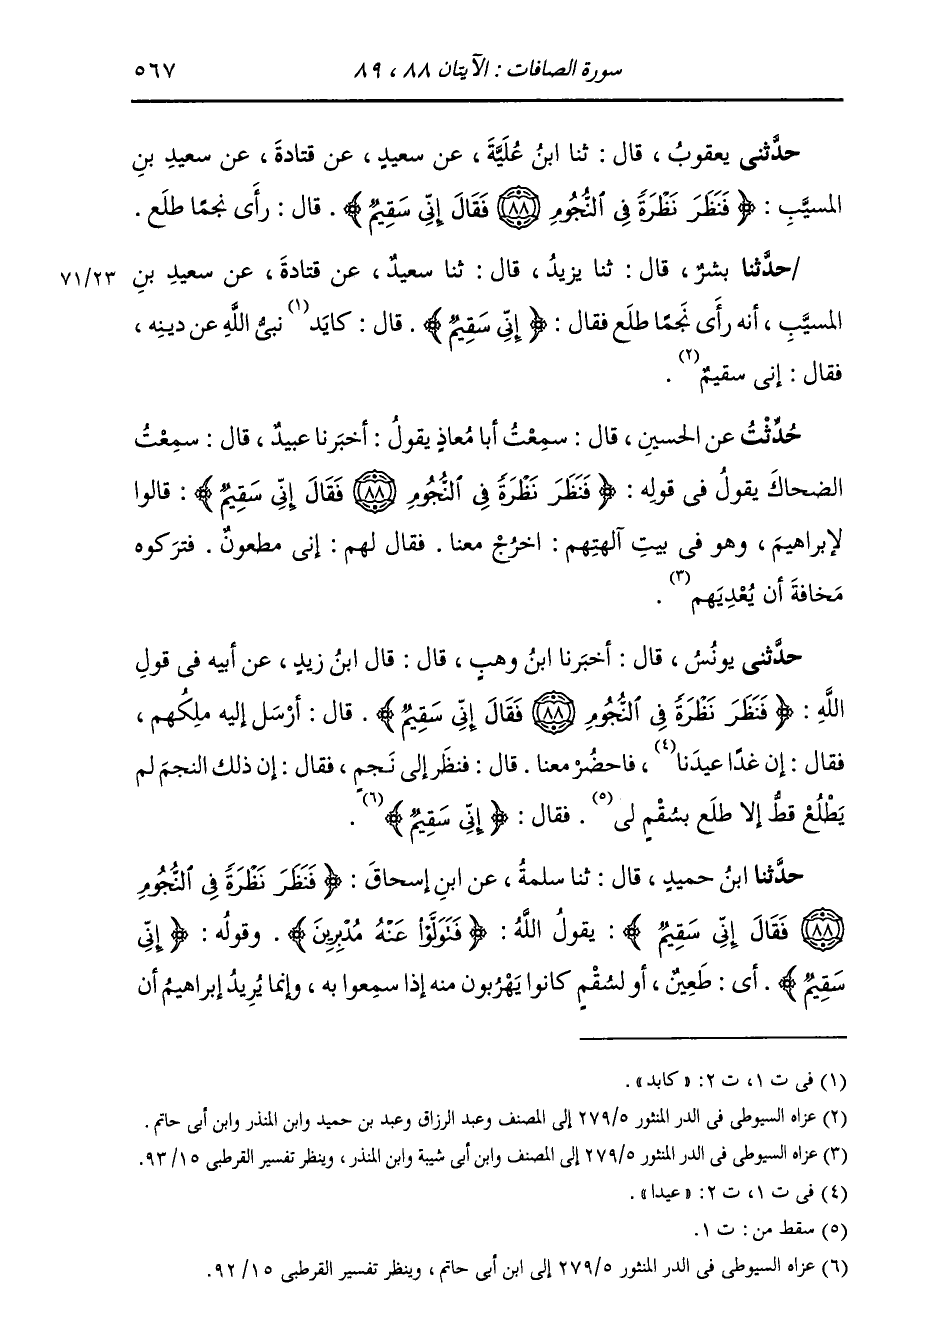 سورة الصافات : الآيتان ٨٨ ، ٨٩ ٥٦٧
حدَّثنى يعقوبُ ، قال : ثنا ابنُ عُلَيَّةَ ، عن سعيدٍ ، عن قتادةَ ، عن سعيدِ بنِ
المسيَّبِ : ﴿ فَنَظَرَ نَظْرَةً فِى ٱلنُّجُومِ (٨٨) فَقَالَ إِنِّى سَقِيمٌ ﴾ . قال : رأَى نجمًا طلَع .
/حدَّثنا بشرٌ ، قال : ثنا يزيدُ ، قال : ثنا سعيدٌ ، عن قتادةَ ، عن سعيدِ بنِ ٧١/٢٣
المسيَّبِ ، أنه رأَى نَجمًا طلَع فقال : ﴿ إِنِّى سَقِيمٌ ﴾ . قال : كايَد(١) نبىُّ اللَّهِ عن دينِه ،
فقال : إنى سقيمٌ(٢) .
حُدِّثْتُ عن الحسينِ ، قال : سمِعْتُ أبا مُعاذٍ يقولُ : أخبَرنا عبيدٌ ، قال : سمِعْتُ
الضحاكَ يقولُ فى قولِه : ﴿ فَنَظَرَ نَظْرَةً فِى ٱلنُّجُومِ (٨٨) فَقَالَ إِنِّى سَقِيمٌ ﴾ : قالوا
لإبراهيمَ ، وهو فى بيتِ آلهتِهم : اخرُجْ معنا . فقال لهم : إنى مطعونٌ . فترَكوه
مَخافةَ أن يُعْدِيَهم(٣) .
حدَّثنى يونُسُ ، قال : أخبَرنا ابنُ وهبٍ ، قال : قال ابنُ زيدٍ ، عن أبيه فى قولِ
اللَّهِ : ﴿ فَنَظَرَ نَظْرَةً فِى ٱلنُّجُومِ (٨٨) فَقَالَ إِنِّى سَقِيمٌ ﴾ . قال : أرْسَل إليه ملِكُهم ،
فقال : إن غدًا عيدَنا(٤) ، فاحضُرْ معنا . قال : فنظَر إلى نَجمٍ ، فقال : إن ذلك النجمَ لم
يَطْلُعْ قطُّ إلا طلَع بسُقْمٍ لى(٥) . فقال : ﴿ إِنِّى سَقِيمٌ ﴾(٦) .
حدَّثنا ابنُ حميدٍ ، قال : ثنا سلمةُ ، عن ابنِ إسحاقَ : ﴿ فَنَظَرَ نَظْرَةً فِى ٱلنُّجُومِ
(٨٨) فَقَالَ إِنِّى سَقِيمٌ ﴾ : يقولُ اللَّهُ : ﴿ فَتَوَلَّوْاْ عَنْهُ مُدْبِرِينَ ﴾ . وقولُه : ﴿ إِنِّى
سَقِيمٌ ﴾ . أى : طَعِينٌ ، أو لسُقْمٍ كانوا يَهْرُبون منه إذا سمِعوا به ، وإنما يُرِيدُ إبراهيمُ أن
(١) فى ت ١، ت ٢: « كابد » .
(٢) عزاه السيوطى فى الدر المنثور ٢٧٩/٥ إلى المصنف وعبد الرزاق وعبد بن حميد وابن المنذر وابن أبى حاتم .
(٣) عزاه السيوطى فى الدر المنثور ٢٧٩/٥ إلى المصنف وابن أبى شيبة وابن المنذر ، وينظر تفسير القرطبى ٩٣/١٥.
(٤) فى ت ١، ت ٢: « عيدا » .
(٥) سقط من : ت ١.
(٦) عزاه السيوطى فى الدر المنثور ٢٧٩/٥ إلى ابن أبى حاتم ، وينظر تفسير القرطبى ٩٢/١٥.